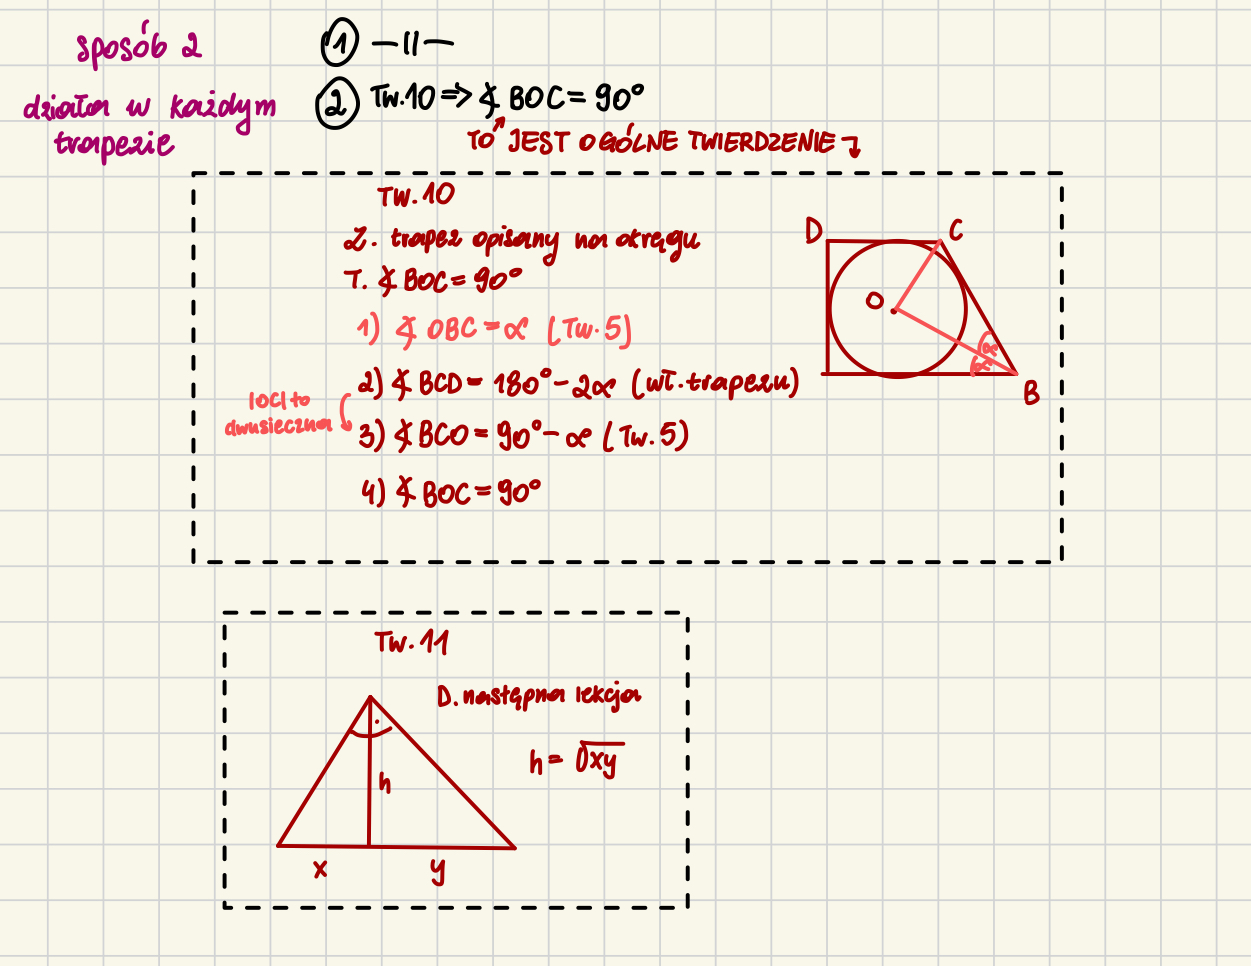 sposób 2
działa w każdym
trapezie
① —||—
② Tw.10 => ∢ BOC = 90°
TO JEST OGÓLNE TWIERDZENIE
Tw.10
Z. trapez opisany na okręgu
T. ∢ BOC = 90°
1) ∢ OBC = α (Tw.5)
2) ∢ BCD = 180° - 2α (wł. trapezu)
|OC| to
dwusieczna
3) ∢ BCO = 90° - α (Tw.5)
4) ∢ BOC = 90°
D
C
O
α
α
B
Tw.11
D. następna lekcja
h = √xy
h
x
y